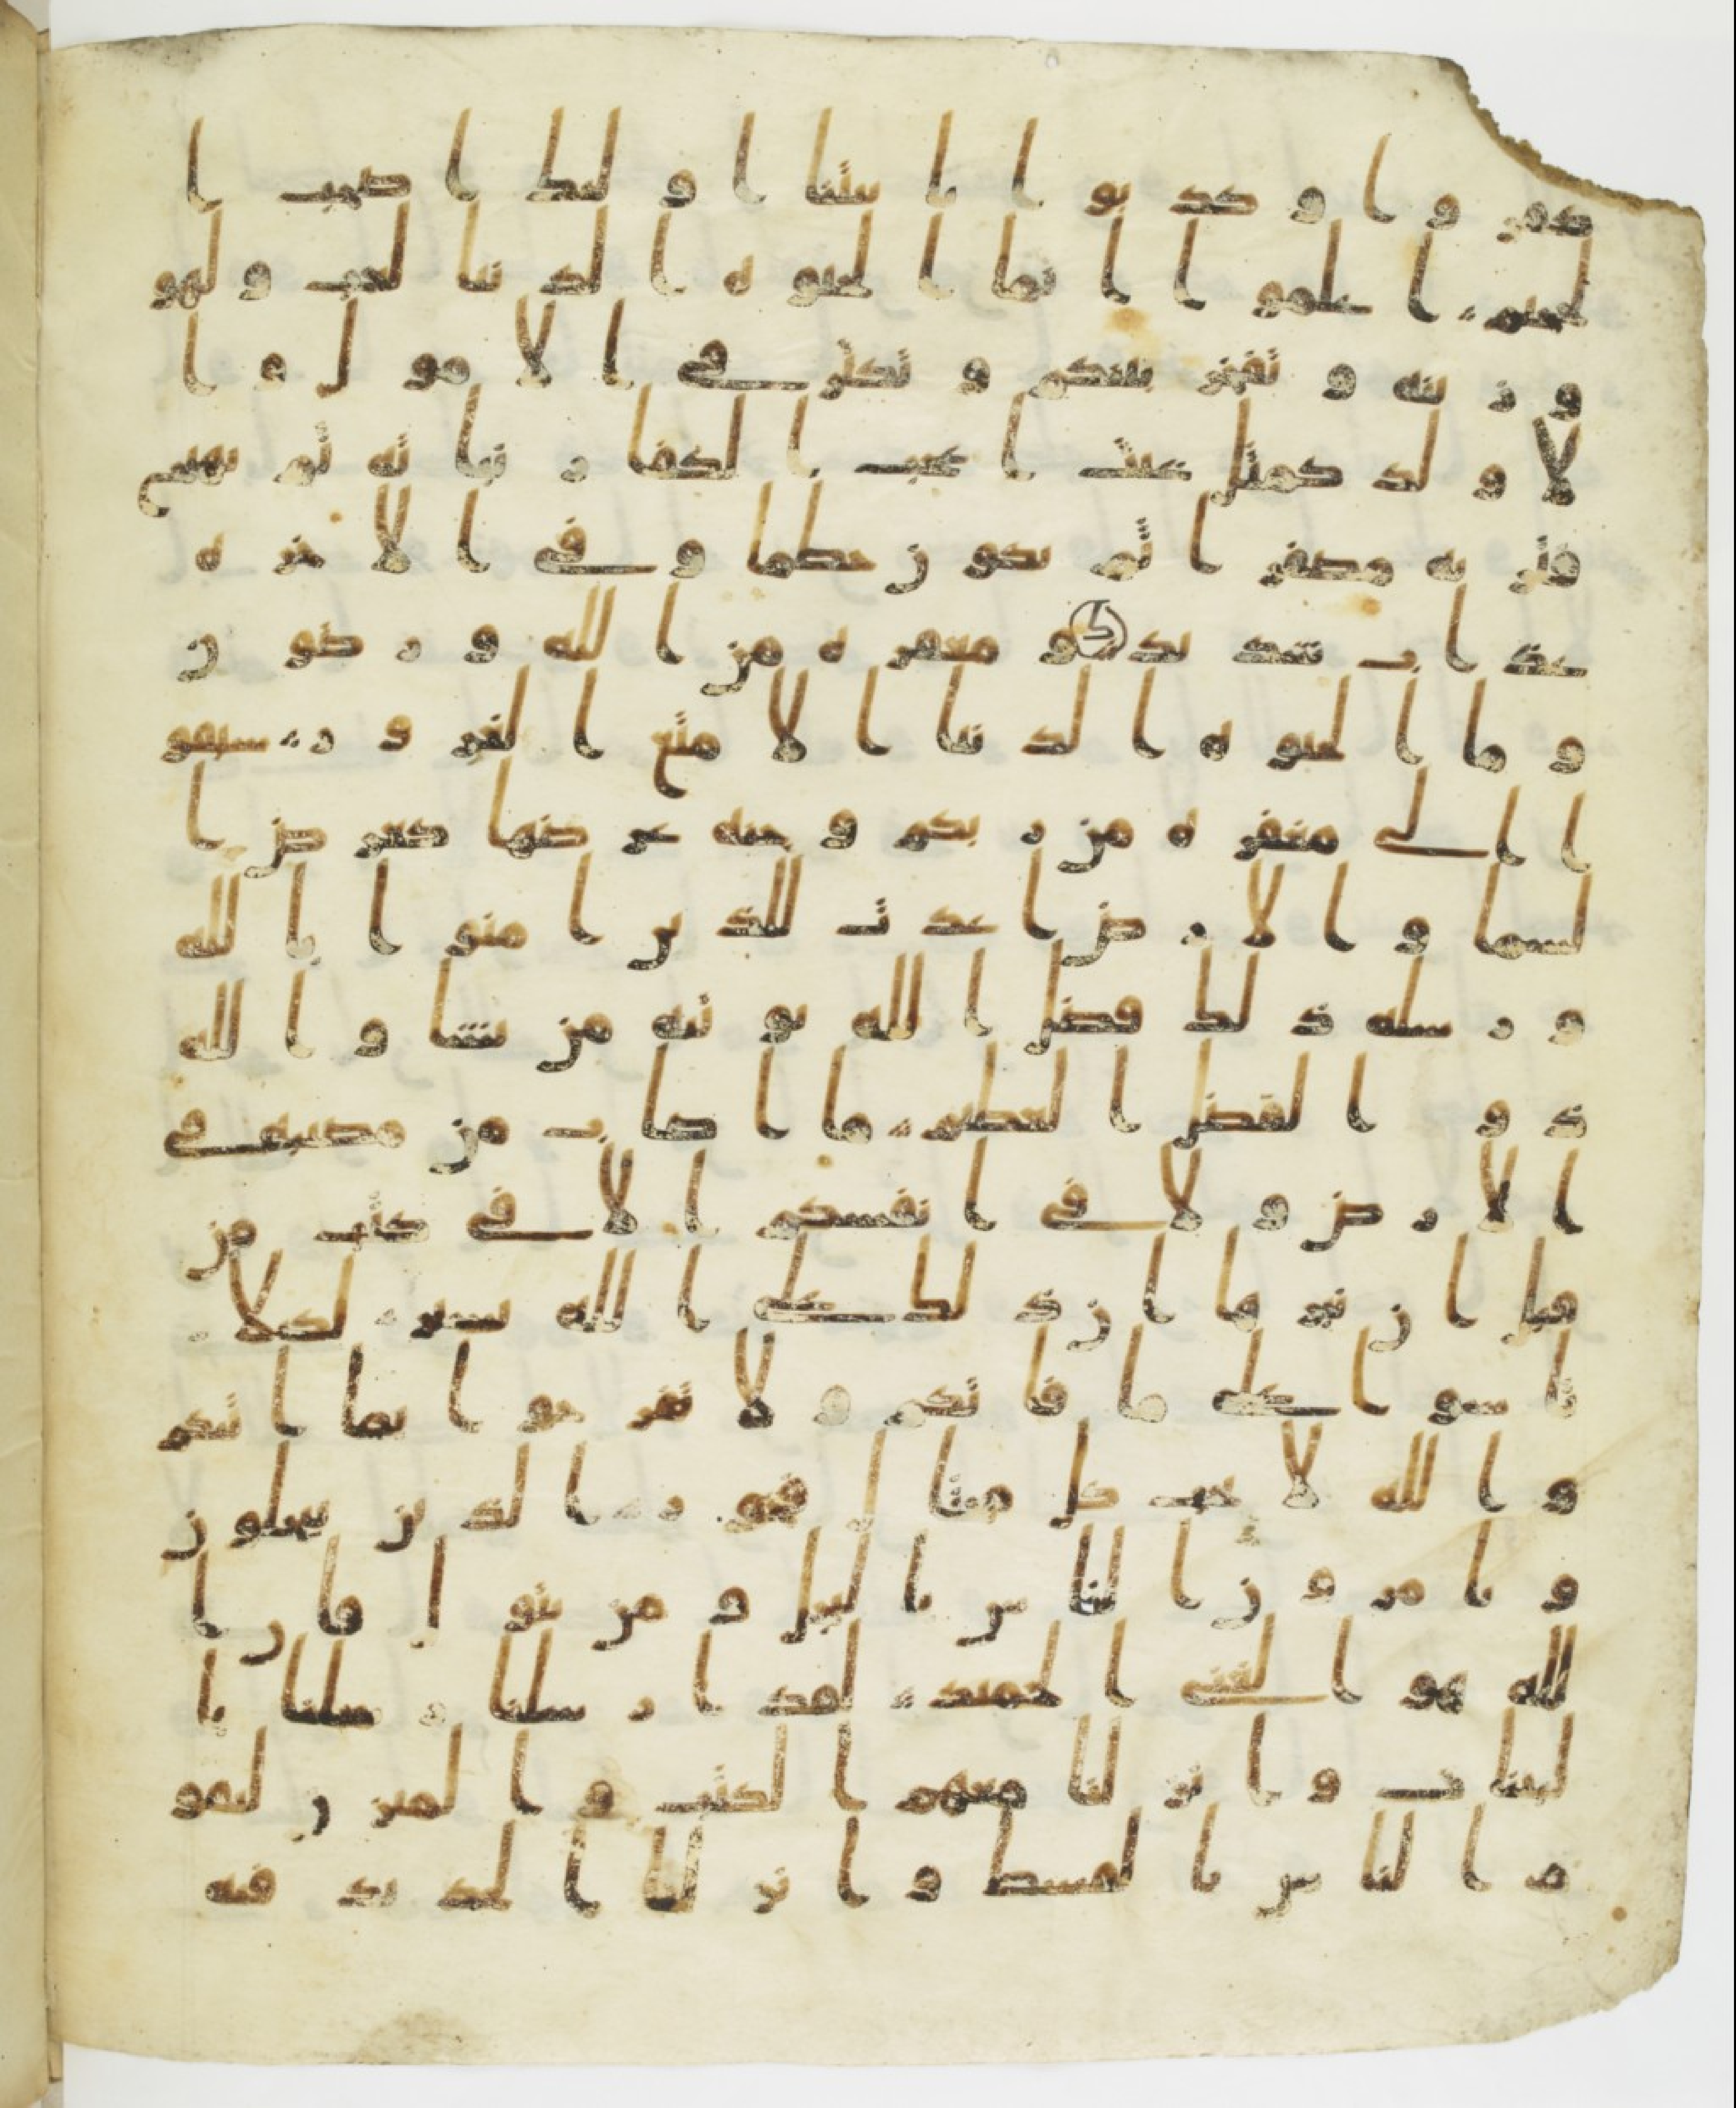 كفروا وكذبوا بايتنا اوليك اصحب ا
لجحيم اعلموا انما الحيوه الدنيا لعب ولهو
وزينه وتفخر بينكم وتكثر في الامول وا
لاولد كمثل غيث اعجب الكفار نباته ثم يهيج
فتريه مصفرا ثم يكون حطما وفي الاخره
عذاب شديد ومغفره من الله ورضون
وما الحيوه الدنيا الا متع الغرور سبقو
ا الى مغفره من ربكم وجنه عرضها كعرض ا
لسما والارض اعدت للذين امنوا بالله
ورسله ذلك فضل الله يوتيه من يشا والله
ذو الفضل العظيم ما اصاب من مصيبه في
الارض ولا في انفسكم الا في كتب من
قبل ان نبرها ان ذلك على الله يسير لكيلا
تاسوا على ما فاتكم ولا تفرحوا بما اتيكم
والله لا يحب كل مختال فخور الذين يبخلون
ويامرون الناس بالبخل ومن يتول فان ا
لله هو الغني الحميد لقد ارسلنا رسلنا با
لبينات وانزلنا معهم الكتب والميزن ليقو
م الناس بالقسط وانزلنا الحديد فيه